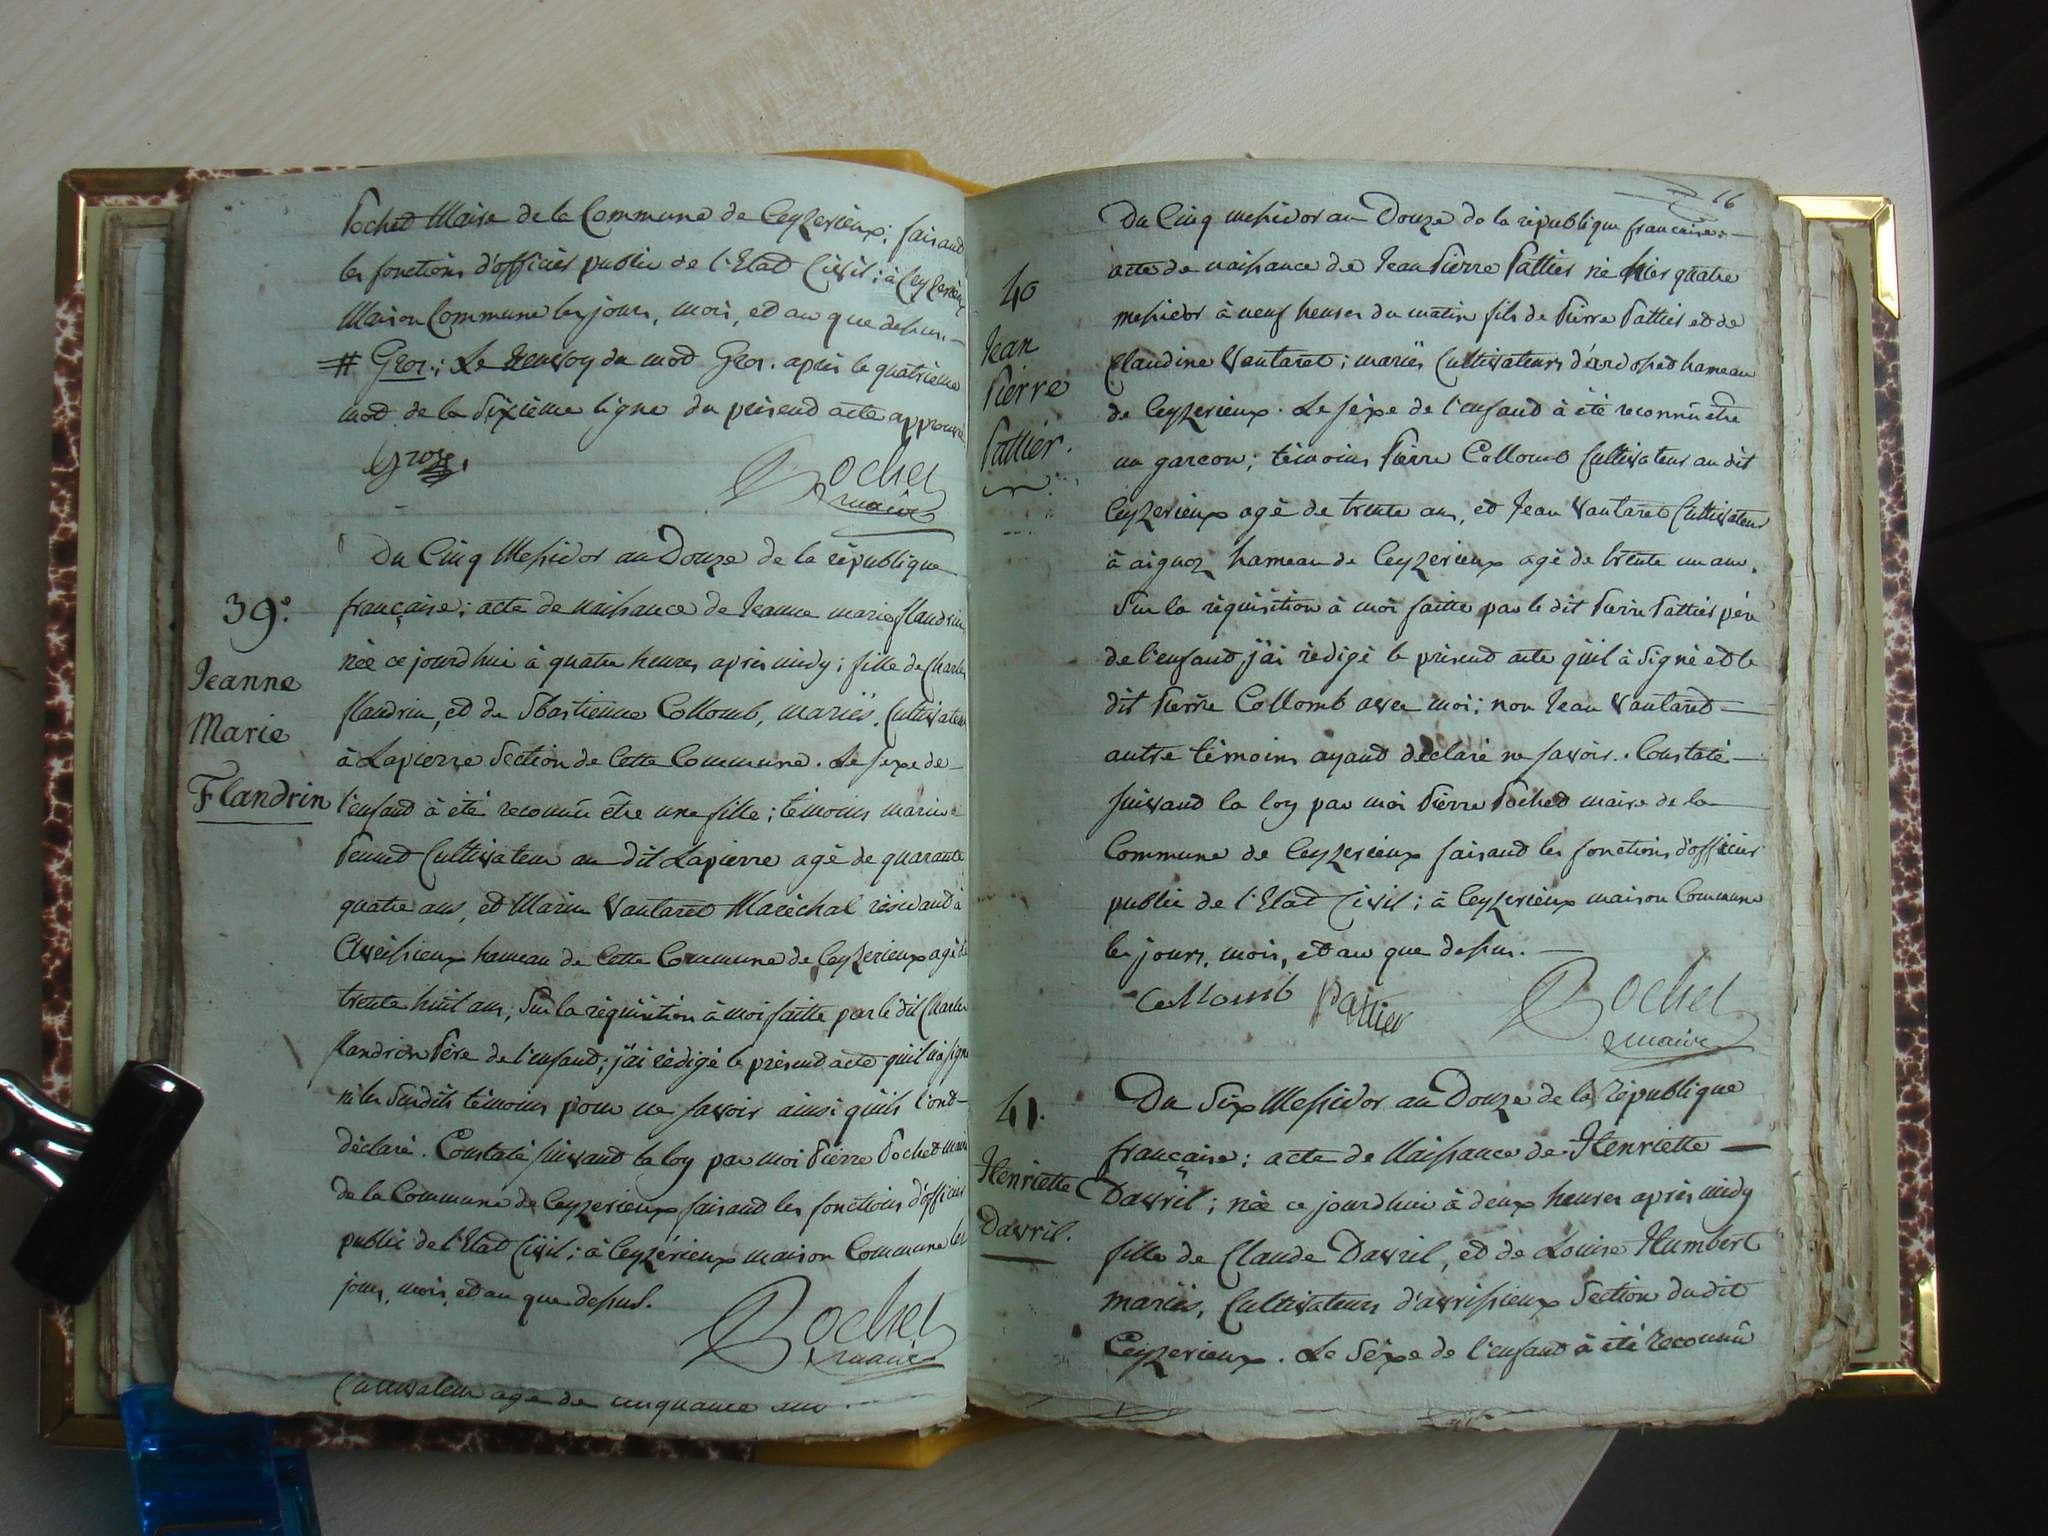 Pochet Maire de la Commune de Ceyzerieux; faisant
les fonctions d'officier public de l'Etat Civil; à Ceyzerieux
Maison Commune les jours, mois, et an que dessus.
# Gros.; Le Renvoy du mot Gros. après le quatrieme
mot de la Sixième ligne du présent acte approuvé
Gros.
Pochet
maire
39.e
Jeanne
Marie
Flandrin
Du Cinq Messidor an Douze de la république
française; acte de naissance de Jeanne marie flandrin
née ce jourdhui à quatre heures après midy; fille de Charles
flandrin, et de Sbastienne Collomb, mariés, Cultivateurs
à Lapierre Section de Cette Commune. Le sexe de
l'enfant à été reconnu être une fille; témoins marin
Pennet Cultivateur au dit Lapierre agé de quarante
quatre ans, et Marin Vautaret Maréchal résidant à
Avrissieux hameau de Cette Commune de Ceyzerieux agé de
trente huit ans; Sur la réquisition à moi faitte par le dit Charles
flandrin Père de l'enfant; j'ai rédigé le présent acte qu'il n'a signé
ni les Susdits témoins pour ne savoir ainsi qu'ils l'ont
déclaré. Constaté suivant la loy par moi Pierre Pochet maire
de la Commune de Ceyzerieux faisant les fonctions d'officier
public de l'Etat Civil; à Ceyzérieux maison Commune les
jours, mois, et an que dessus.
Pochet
maire
Cultivateur agé de cinquante ans
16
40
Jean
Pierre
Pattier.
Du Cinq messidor an Douze de la république française;
acte de naissance de Jean Pierre Pattier né hier quatre
messidor à neuf heures du matin fils de Pierre Pattier et de
Claudine Vautaret; mariés Cultivateurs d'ardosset hameau
de Ceyzerieux. Le sèxe de l'enfant à été reconnû être
un garcon; témoins Pierre Collomb Cultivateur au dit
Ceyzerieux agé de trente ans, et Jean Vautaret Cultivateur
à aignoz hameau de Ceyzerieux agé de trente un ans.
Sur la réquisition à moi faitte par le dit Pierre Pattier père
de l'enfant, j'ai rédigé le présent acte qu'il à signé et le
dit Pierre Collomb avec moi; non Jean Vautaret
autre témoins ayant déclaré ne savoir. Constaté
suivant la loy par moi Pierre Pochet maire de la
Commune de Ceyzerieux faisant les fonctions d'officier
public de l'Etat Civil; à Ceyzerieux maison Commune
les jours, mois, et an que dessus.
Collomb Pattier Pochet
maire
41.
Henriette
Davril.
Du Six Messidor an Douze de la République
française; acte de Naissance de Henriette
Davril; née ce jourdhui à deux heures après midy
fille de Claude Davril, et de Louise Humbert
mariés, Cultivateurs d'avrissieux Section du dit
Ceyzerieux. Le Sèxe de l'enfant à été reconnû